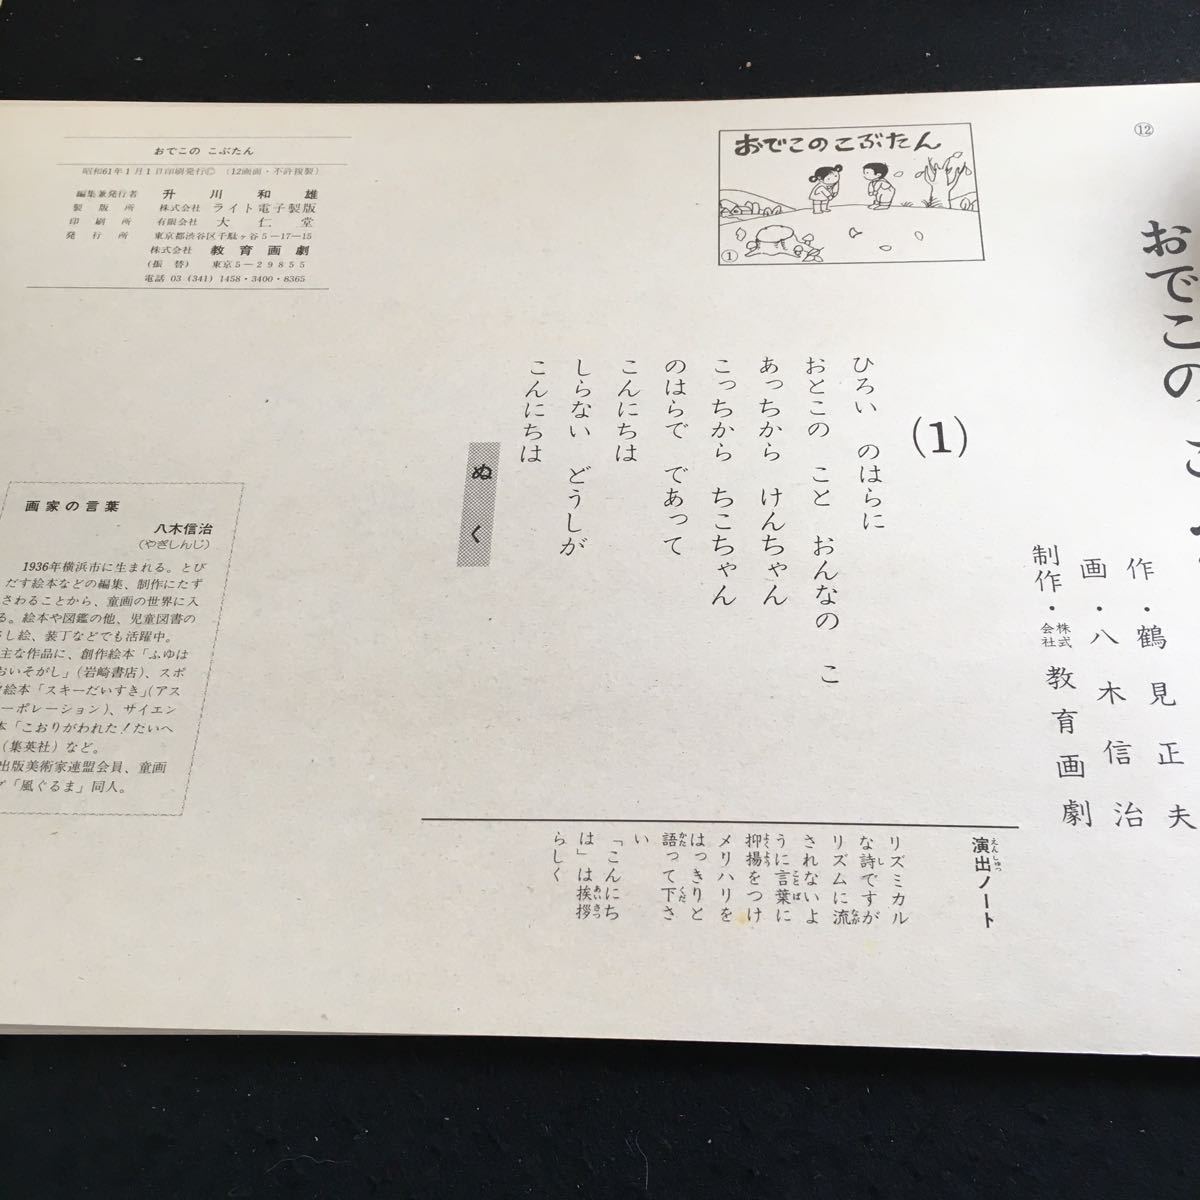 ⑫
おでこの
作・鶴見正夫
画・八木信治
制作・株式会社教育画劇
おでこのこぶたん
①
(1)
ひろい のはらに
おとこの こと おんなの こ
あっちから けんちゃん
こっちから ちこちゃん
のはらで であって
こんにちは
しらない どうしが
こんにちは
ぬく
演出ノート
えんしゅつ
リズミカル
な詩ですが
リズムに流
されないよ
うに言葉に
抑揚をつけ
メリハリを
はっきりと
語って下さ
い
「こんにち
は」は挨拶
らしく
おでこの こぶたん
昭和61年1月1日印刷発行Ⓒ (12画面・不許複製)
編集兼発行者 升川和雄
製版所 株式会社 ライト電子製版
印刷所 有限会社 大仁堂
発行所 東京都渋谷区千駄ヶ谷5-17-15
株式会社 教育画劇
(振替) 東京5-29855
電話 03 (341) 1458・3400・8365
画家の言葉
八木信治
(やぎしんじ)
1936年横浜市に生まれる。とび
だす絵本などの編集、制作にたず
さわることから、童画の世界に入
る。絵本や図鑑の他、児童図書の
さし絵、装丁などでも活躍中。
主な作品に、創作絵本「ふゆは
おいそがし」(岩崎書店)、スポ
ーツ絵本「スキーだいすき」(アス
ーポレーション)、サイエン
本「こおりがわれた!たいへ
(集英社)など。
出版美術家連盟会員、童画
「風ぐるま」同人。